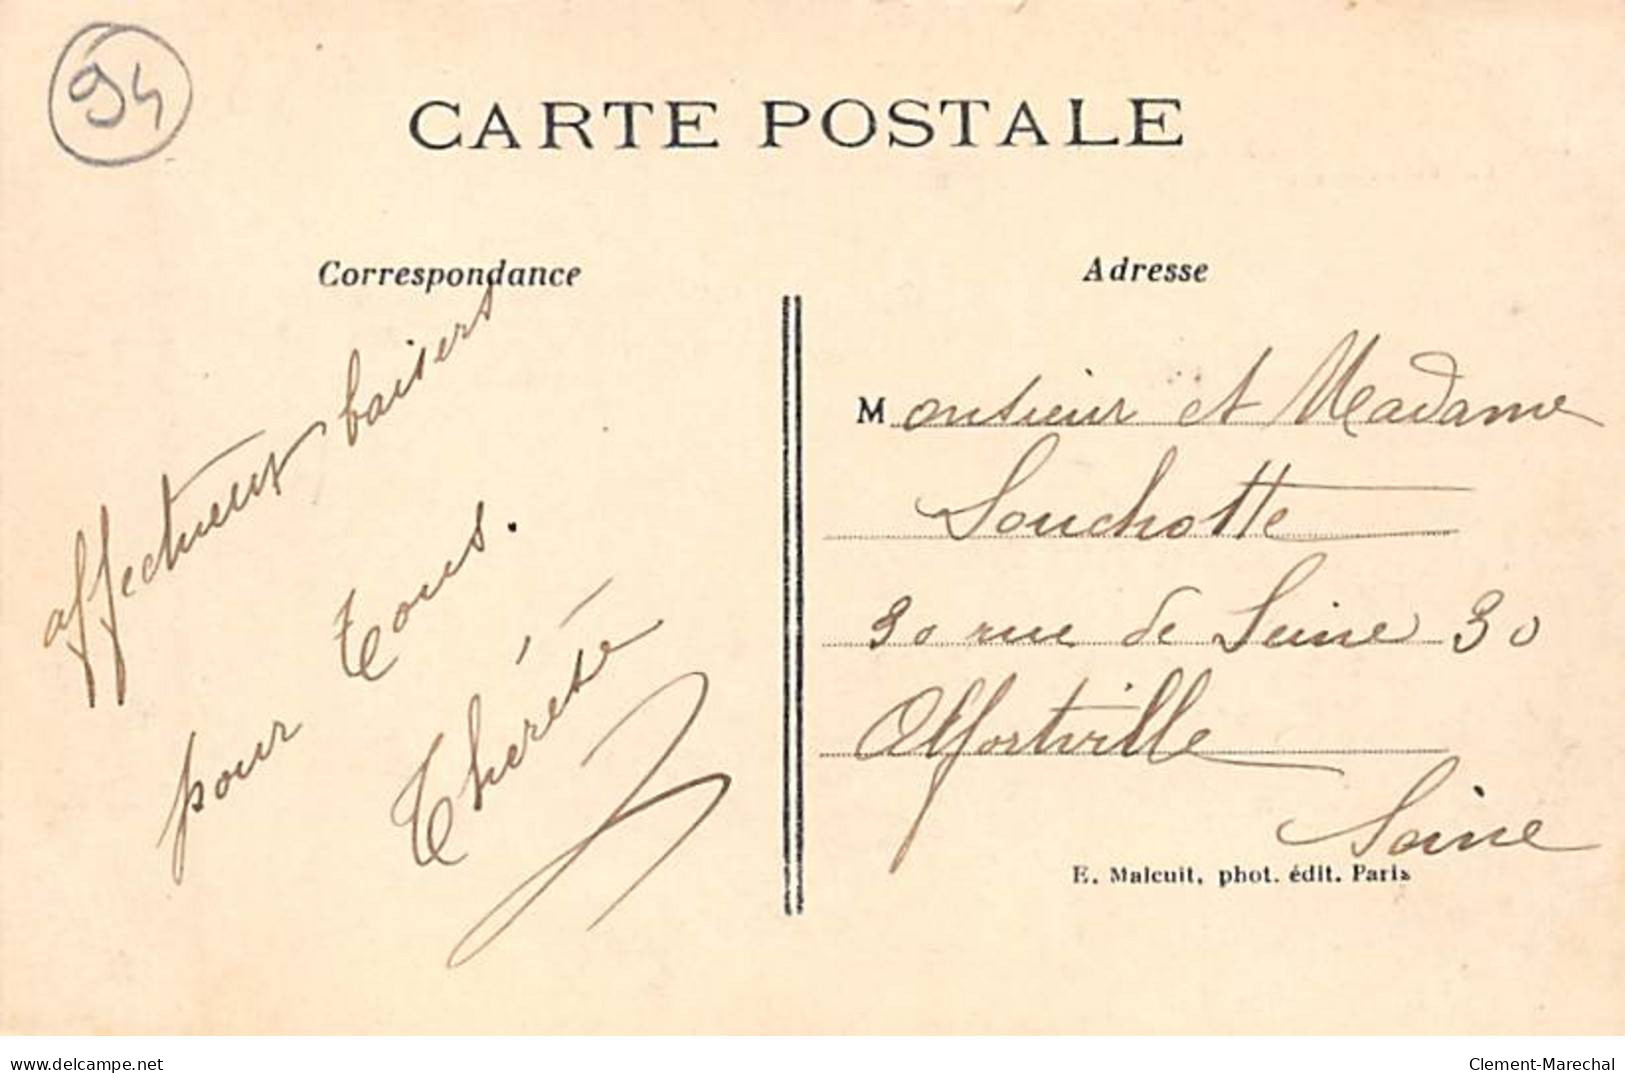 94
CARTE POSTALE
Correspondance
affectueux baisers
pour tous.
Thérèse
Adresse
Monsieur et Madame
Souchotte
30 rue de Seine 30
Alfortville
Seine
E. Malcuit, phot. édit. Paris
www.delcampe.net
Clement-Marechal